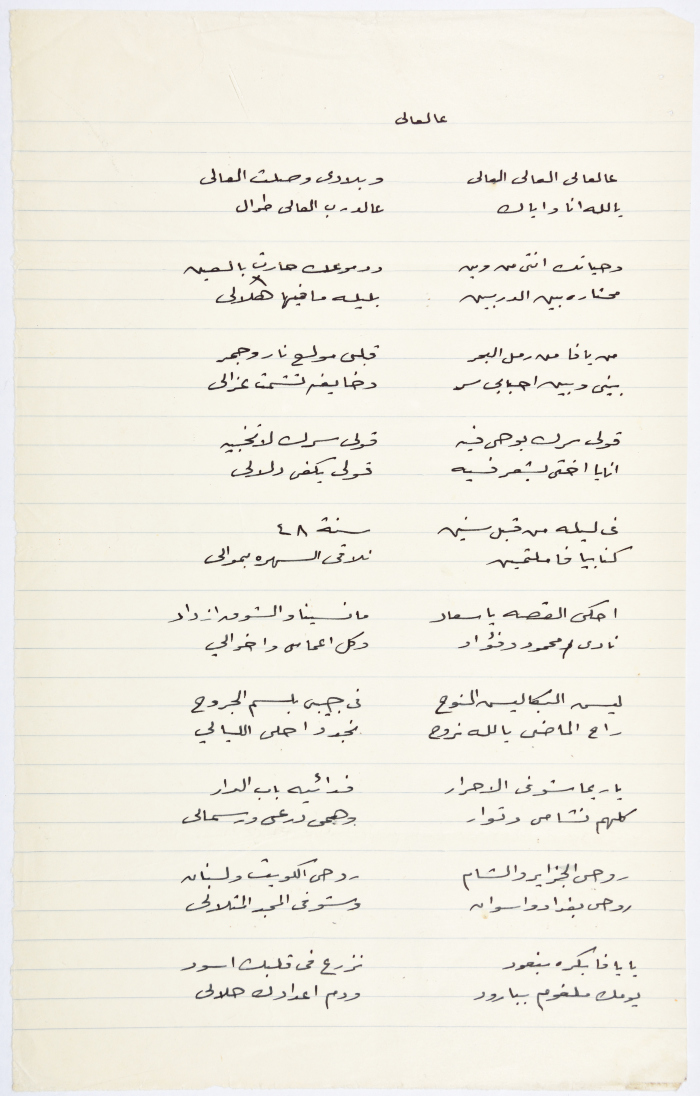 عالعالى
عالعالى العالى العالى وبلادى وصلت العالى
يالله انا واياك عالدرب العالى طوال
وحياتك انتى من وين ودموعك حارت بالعين
محتاره بين الدربين بليله مافيها هلالى
من يافا من رمل البحر قلبى مولع نار وجمر
بينى وبين احبابى سر وخايفه تشمت عزالى
قولى سرك بوحى فيه قولى سرك لا تخبيه
انا يا اختى بشعر فيه قولى بكفى دلالى
فى ليله من قبل سنين سنة ٤٨
كنا بيافا ملتمين نلاقى السهره بموالى
احكى القصه يا سعاد مانسينا والشوق ازداد
نادى محمود وفؤاد وكل اعمامى واخوالي
ليس البكا ليس النوح فى جيبى بلسم الجروح
راح الماضى يالله نروح نجدد احلى الليالي
يا ريما شوفى الاحرار فدائيه باب الدار
كلهم نشامى وثوار وهمى درعى ورسمالى
روحى الجزاير والشام روحى الكويت ولبنان
روحى بغداد واسوان وشوفى المجد المتلالى
يا يافا بكره بنعود نزرع فى قلبك اسود
يومك ملغوم ببارود ودم اعدائك حلالى